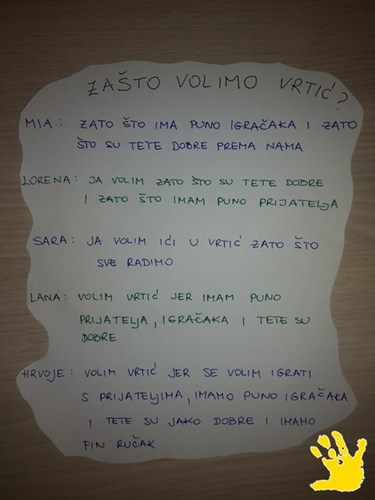 ZAŠTO VOLIMO VRTIĆ?
MIA: ZATO ŠTO IMA PUNO IGRAČAKA I ZATO
ŠTO SU TETE DOBRE PREMA NAMA
LORENA: JA VOLIM ZATO ŠTO SU TETE DOBRE
I ZATO ŠTO IMAM PUNO PRIJATELJA
SARA: JA VOLIM IĆI U VRTIĆ ZATO ŠTO
SVE RADIMO
LANA: VOLIM VRTIĆ JER IMAM PUNO
PRIJATELJA, IGRAČAKA I TETE SU
DOBRE
HRVOJE: VOLIM VRTIĆ JER SE VOLIM IGRATI
S PRIJATELJIMA, IMAMO PUNO IGRAČAKA
I TETE SU JAKO DOBRE I IMAMO
FIN RUČAK